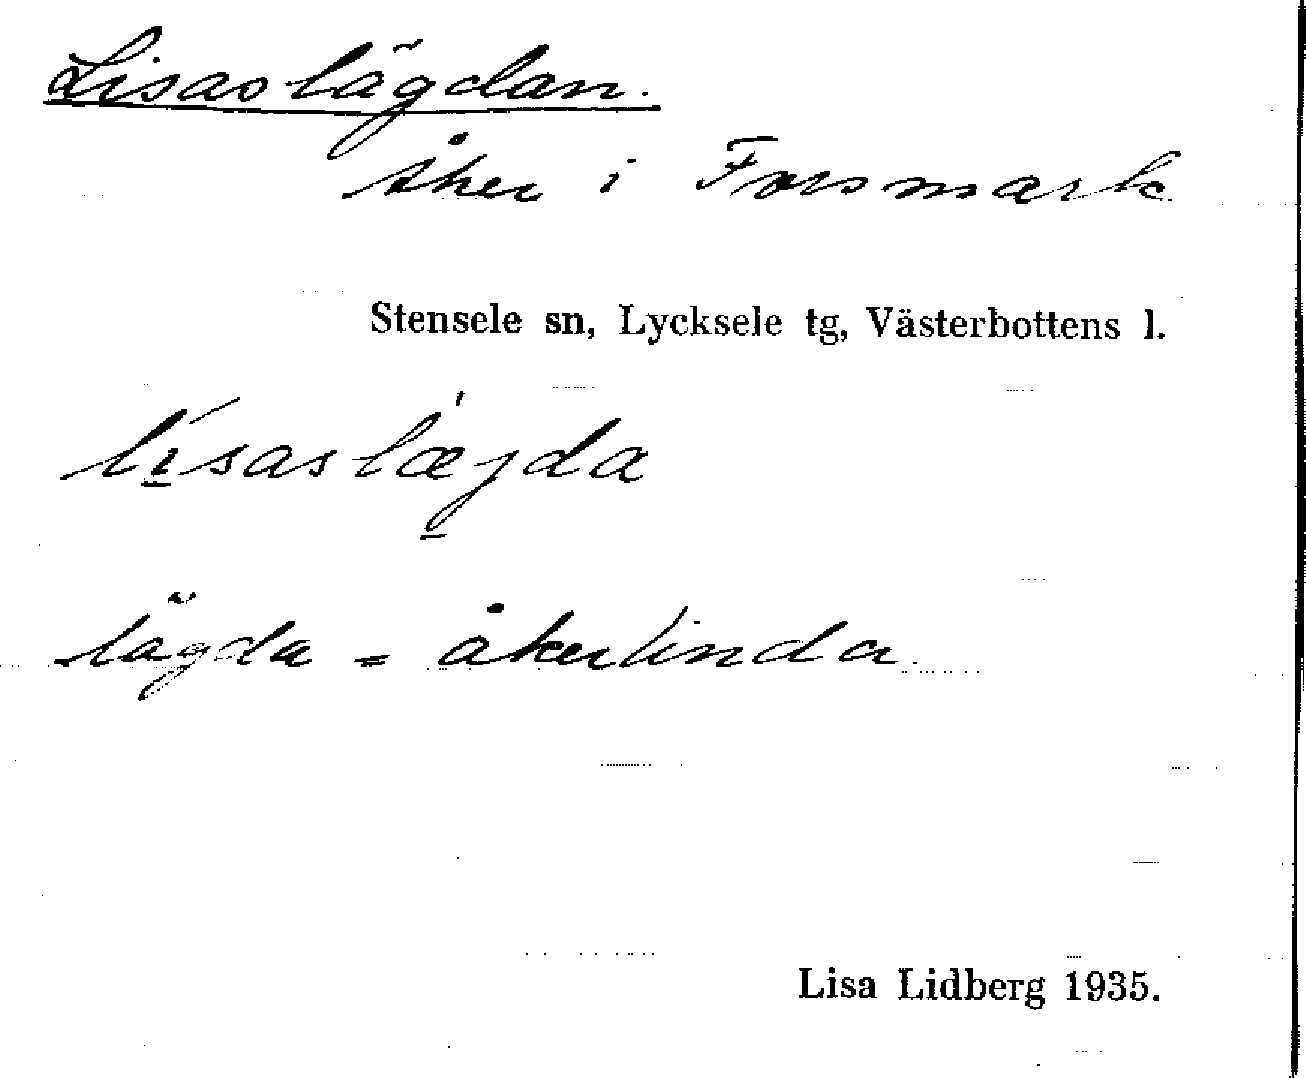 Lisaslägdan.
Åker i Forsmark
Stensele sn, Lycksele tg, Västerbottens l.
lísaslæ̀jda
lägda = åkerlinda
Lisa Lidberg 1935.